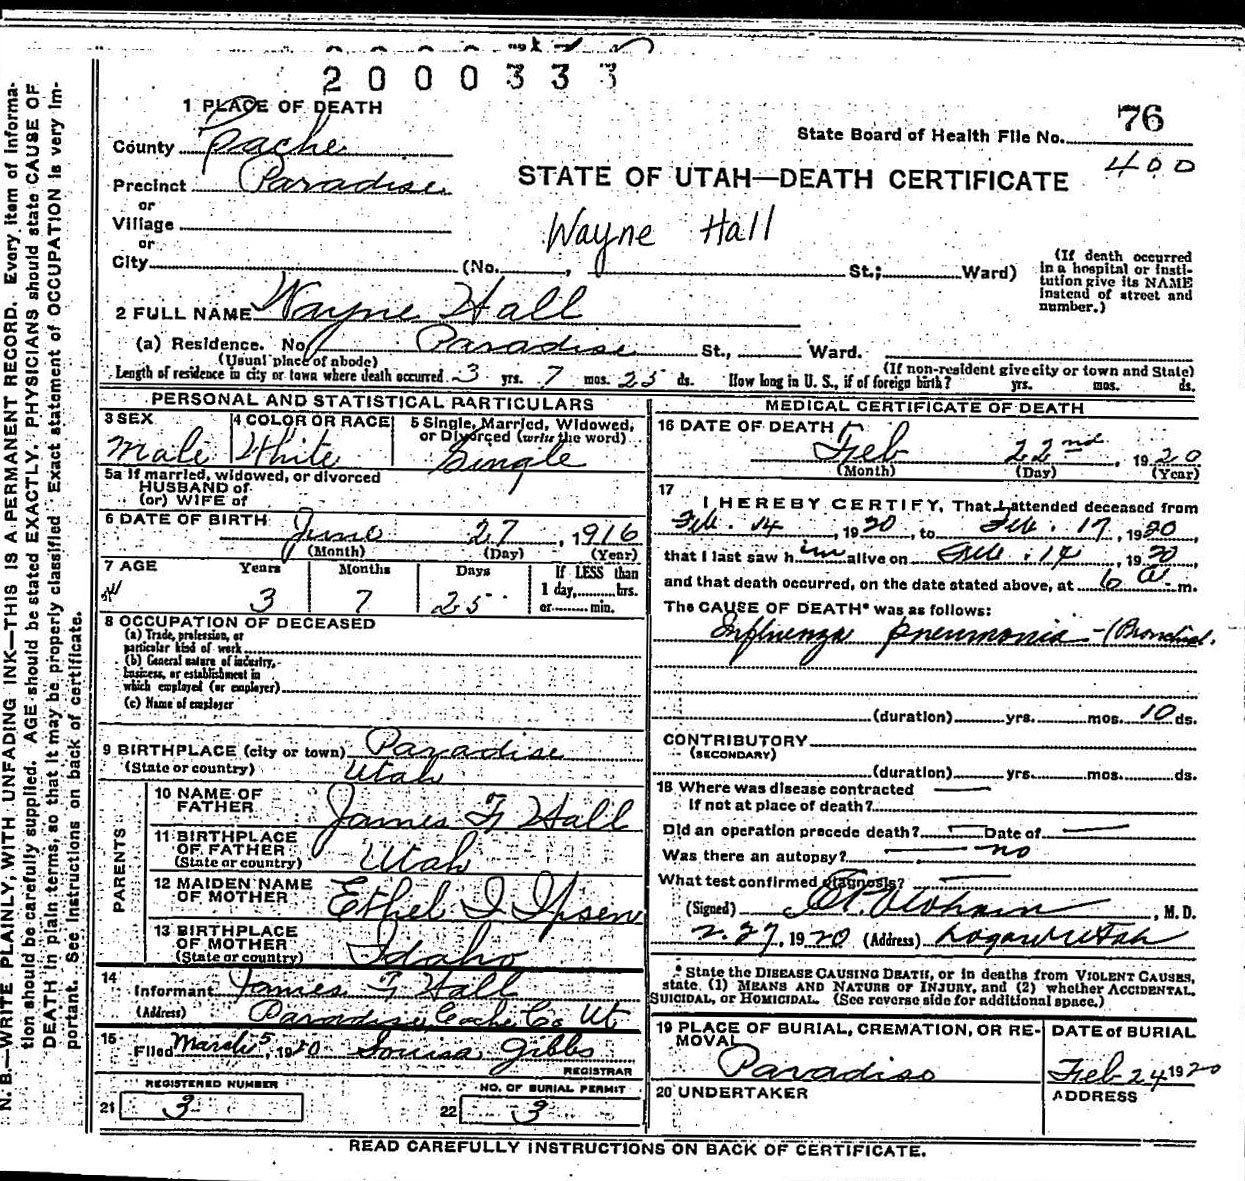 2000333
1 PLACE OF DEATH
76
County Cache
State Board of Health File No.
400
Precinct Paradise
STATE OF UTAH—DEATH CERTIFICATE
or
Village
Wayne Hall
or
City (No. , St.; Ward)
(If death occurred in a hospital or insti-
tution give its NAME
instead of street and
number.)
2 FULL NAME Wayne Hall
(a) Residence. No. Paradise St., Ward.
(Usual place of abode) (If non-resident give city or town and State)
Length of residence in city or town where death occurred 3 yrs. 7 mos. 25 ds. How long in U. S., if of foreign birth? yrs. mos. ds.
PERSONAL AND STATISTICAL PARTICULARS
3 SEX
Male
4 COLOR OR RACE
White
5 Single, Married, Widowed,
or Divorced (write the word)
Single
5a If married, widowed, or divorced
HUSBAND of
(or) WIFE of
6 DATE OF BIRTH June 27, 1916
(Month) (Day) (Year)
7 AGE Years Months Days If LESS than
1 day, hrs.
or min.
3 7 25
8 OCCUPATION OF DECEASED
(a) Trade, profession, or
particular kind of work
(b) General nature of industry,
business, or establishment in
which employed (or employer)
(c) Name of employer
9 BIRTHPLACE (city or town) Paradise
(State or country) Utah
PARENTS
10 NAME OF
FATHER James F Hall
11 BIRTHPLACE
OF FATHER
(State or country) Utah
12 MAIDEN NAME
OF MOTHER Ethel I Ipsen
13 BIRTHPLACE
OF MOTHER
(State or country) Idaho
14
Informant James F Hall
(Address) Paradise Cache Co Ut
15
Filed March 5, 1920 Louisa Gibbs
REGISTRAR
REGISTERED NUMBER
21 3
NO. OF BURIAL PERMIT
22 3
MEDICAL CERTIFICATE OF DEATH
16 DATE OF DEATH
Feb 22nd, 1920
(Month) (Day) (Year)
17
I HEREBY CERTIFY, That I attended deceased from
Feb. 14, 1920, to Feb. 17, 1920
that I last saw him alive on Feb. 14, 1920
and that death occurred, on the date stated above, at 6 a. m.
The CAUSE OF DEATH* was as follows:
Influenza pneumonia - (Bronchial.
(duration) yrs. mos. 10 ds.
CONTRIBUTORY
(SECONDARY)
(duration) yrs. mos. ds.
18 Where was disease contracted
If not at place of death?
Did an operation precede death? — Date of —
Was there an autopsy? — no
What test confirmed diagnosis? —
(Signed) , M. D.
2.27, 1920 (Address) Logan Utah
* State the DISEASE CAUSING DEATH, or in deaths from VIOLENT CAUSES,
state (1) MEANS AND NATURE OF INJURY, and (2) whether ACCIDENTAL,
SUICIDAL, or HOMICIDAL. (See reverse side for additional space.)
19 PLACE OF BURIAL, CREMATION, OR RE-
MOVAL
Paradise
DATE of BURIAL
Feb 24 1920
20 UNDERTAKER
ADDRESS
READ CAREFULLY INSTRUCTIONS ON BACK OF CERTIFICATE.
N. B.—WRITE PLAINLY, WITH UNFADING INK—THIS IS A PERMANENT RECORD. Every item of informa-
tion should be carefully supplied. AGE should be stated EXACTLY. PHYSICIANS should state CAUSE OF
DEATH in plain terms, so that it may be properly classified. Exact statement of OCCUPATION is very im-
portant. See instructions on back of certificate.